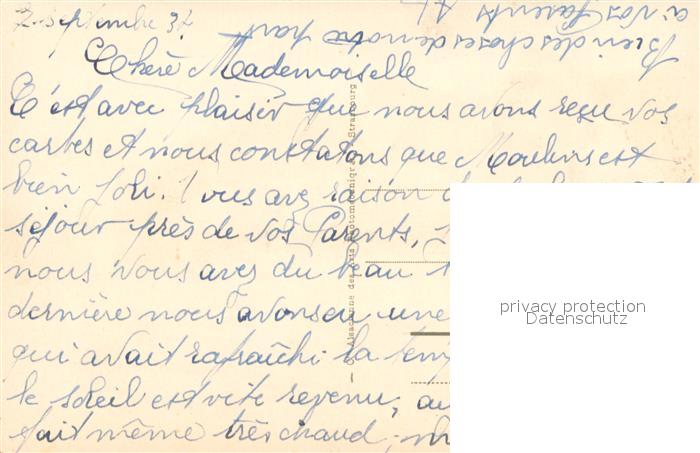 2 septembre 37
Chère Mademoiselle
C'est avec plaisir que nous avons reçu vos
cartes et nous constatons que Moulins est
bien joli. Vous avez raison
séjour près de vos Parents,
nous vous avez du beau
dernière nous avons eu une
qui avait rafraîchi la
le soleil est vite revenu,
fait même très chaud,
Bien des choses de notre part
à vos Parents
Alsacienne des Arts Photomécaniques Strasbourg
privacy protection
Datenschutz